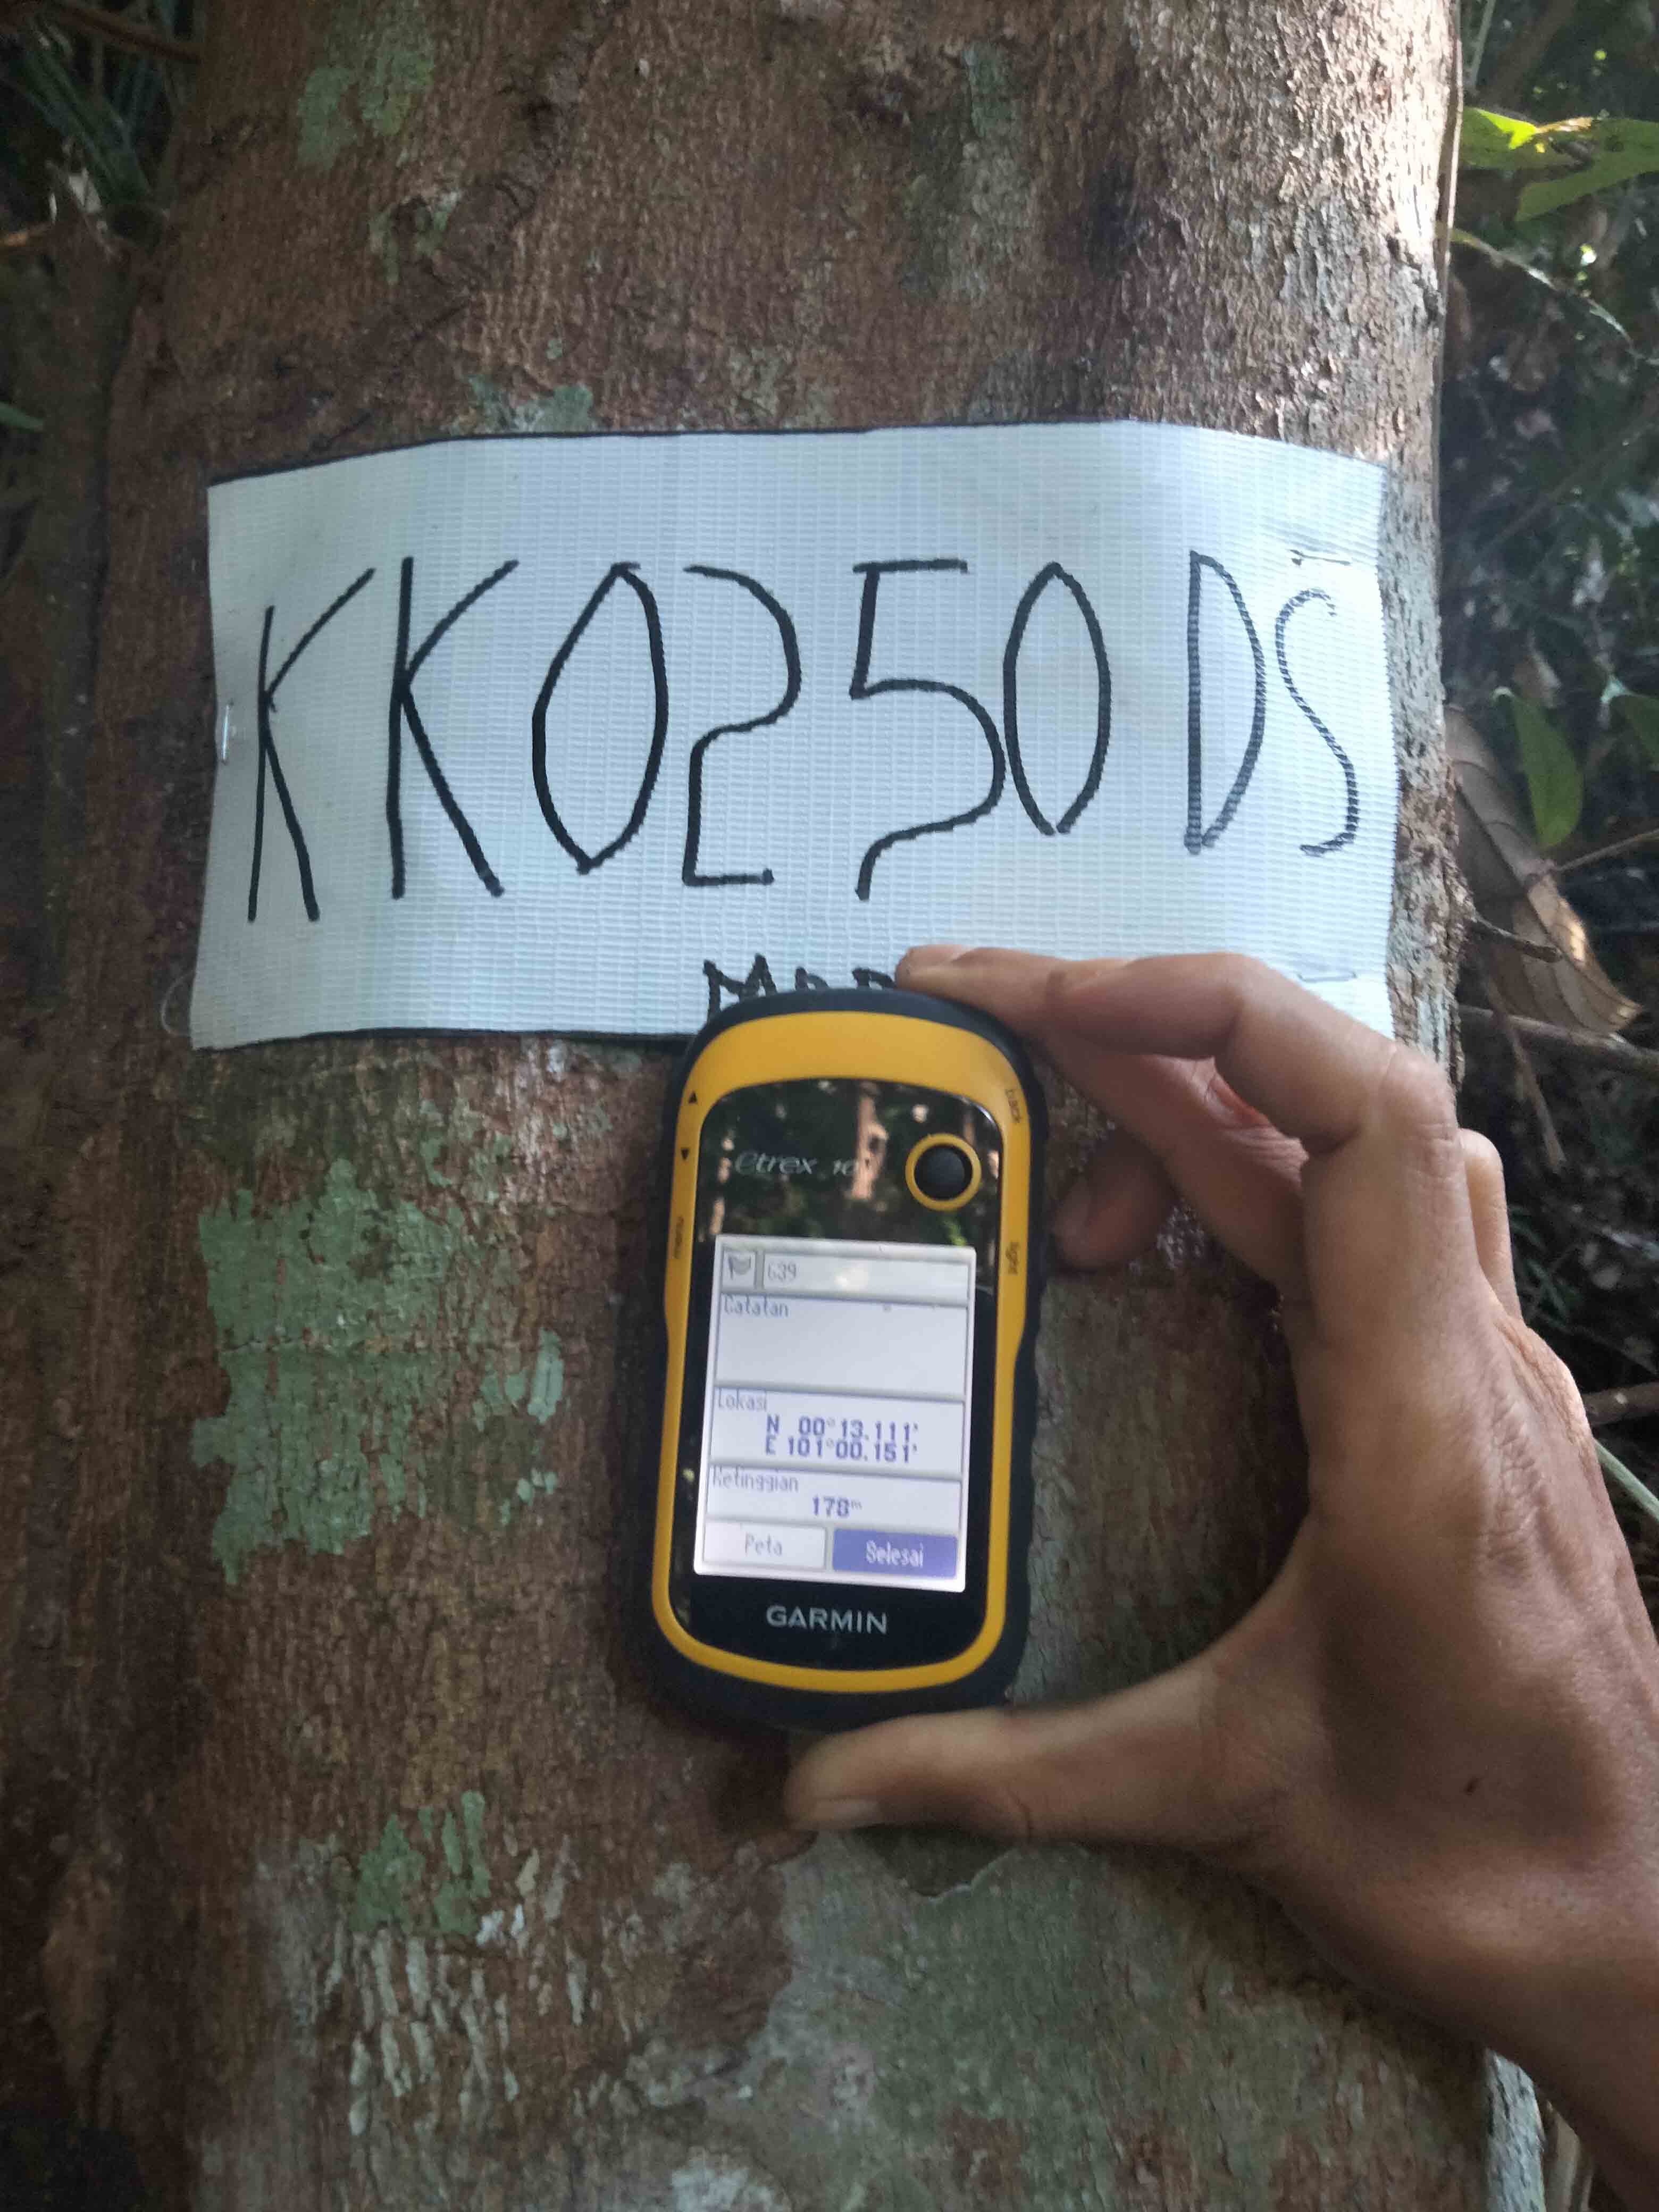 KK0250 DS
eTrex 10
back
menu
light
639
Catatan
Lokasi
N 00°13.111'
E 101°00.151'
Ketinggian
178m
Peta
Selesai
GARMIN